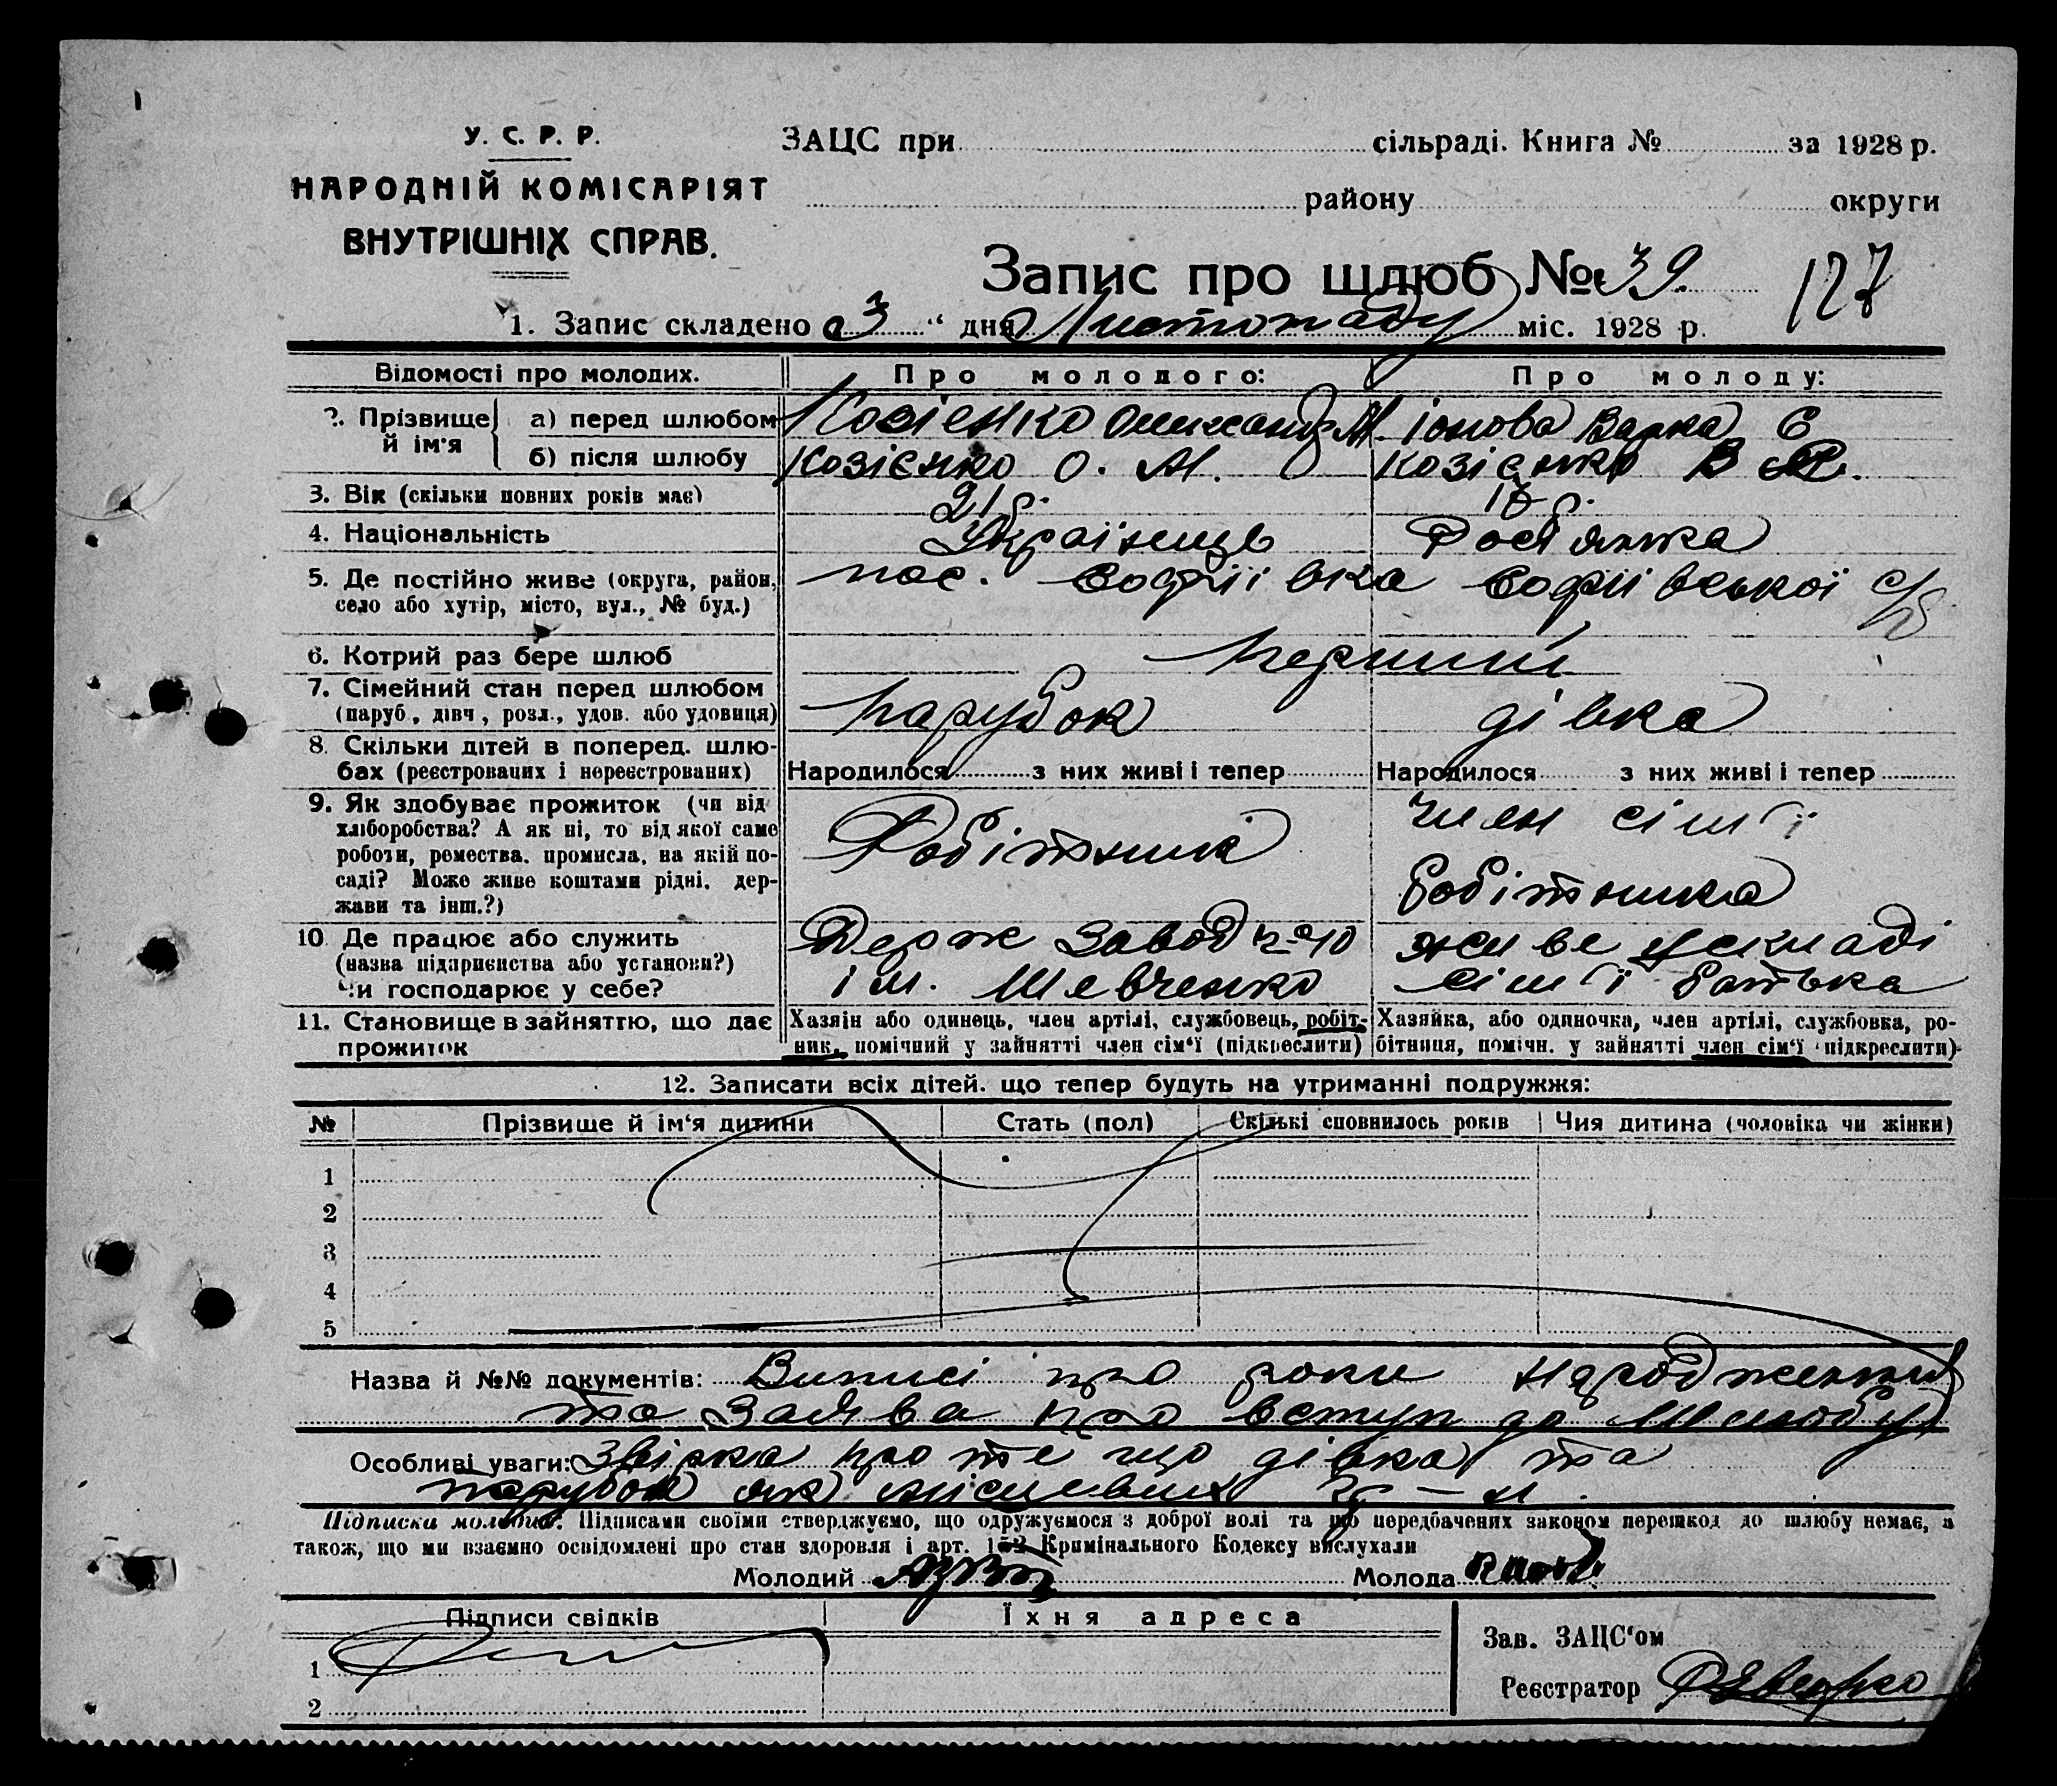 У. С. Р. Р.
НАРОДНІЙ КОМІСАРІЯТ
ВНУТРІШНІХ СПРАВ.
ЗАЦС при сільраді. Книга № за 1928 р.
району округи
Запис про шлюб № 39. 127
1. Запис складено 3 " дня Листопаду міс. 1928 р.
Відомості про молодих. Про молодого: Про молоду:
2. Прізвище й ім'я а) перед шлюбом Козієнко Олександр М. Іонова Варка Є
б) після шлюбу Козієнко О. М. Козієнко В
3. Вік (скільки повних років має) 21 р. 18 р.
4. Національність Українець Росіянка
5. Де постійно живе (округа, район, пос. Софіївка Софіївської с/р
село або хутір, місто, вул., № буд.)
6. Котрий раз бере шлюб перший
7. Сімейний стан перед шлюбом парубок дівка
(паруб., дівч., розл., удов. або удовиця)
8. Скільки дітей в поперед. шлю-
бах (реєстрованих і нереєстрованих) Народилося з них живі і тепер Народилося з них живі і тепер
9. Як здобуває прожиток (чи від член сім'ї
хліборобства? А як ні, то від якої саме Робітник
роботи, ремества, промисла, на якій по-
саді? Може живе коштами рідні, дер- робітника
жави та інш.?)
10. Де працює або служить Держ завод №10 живе ускладі
(назва підприємства або установи?) ім. Шевченко сім'ї батька
Чи господарює у себе?
11. Становище в зайняттю, що дає Хазяїн або одинець, член артілі, службовець, робіт- Хазяйка, або одиночка, член артілі, службовка, ро-
прожиток ник, помічний у зайнятті член сім'ї (підкреслити) бітниця, помічн. у зайнятті член сім'ї (підкреслити)
12. Записати всіх дітей. що тепер будуть на утриманні подружжя:
№ Прізвище й ім'я дитини Стать (пол) Скількі сповнилось років Чия дитина (чоловіка чи жінки)
1
2
3
4
5
Назва й №№ документів: Виписі про роки народження
та Заява про вступ до Шлюбу
Особливі уваги: Звірка про те що дівка та
парубок як місцевих гр-н.
Підписка молодих: Підписами своїми стверджуємо, що одружуємося з доброї волі та що передбачених законом перешкод до шлюбу немає, а
також, що ми взаємно освідомлені про стан здоровля і арт. Кримінального Кодексу вислухали
Молодий Молода
Підписи свідків Їхня адреса
Зав. ЗАЦС'ом
1
Реєстратор
2